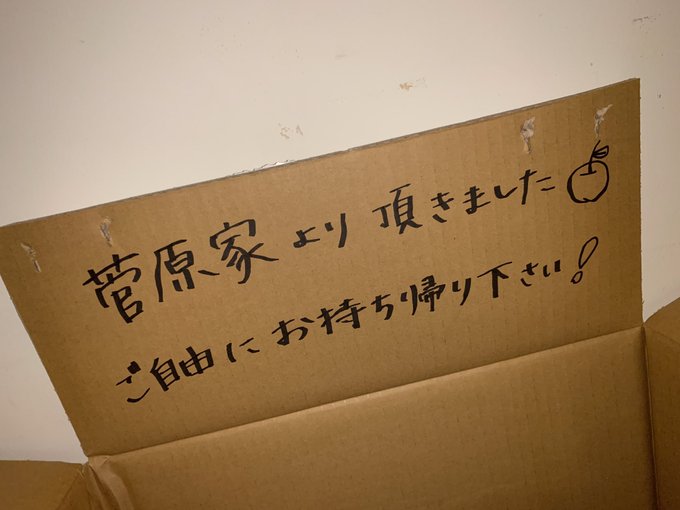 菅原家より頂きました
ご自由にお持ち帰り下さい!